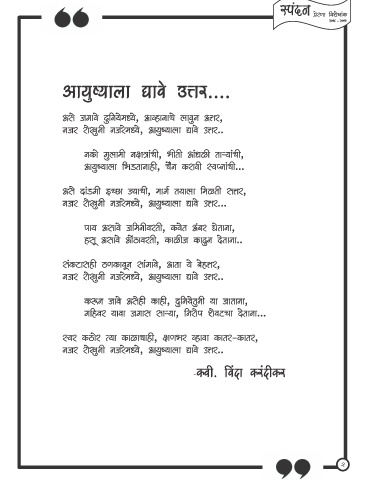 स्पंदन प्रेरणा विशेषांक
आयुष्याला द्यावे उत्तर....
असे जगावे दुनियेमध्ये, आव्हानाचे लावुन अत्तर,
नजर रोखुनी नजरेमध्ये, आयुष्याला द्यावे उत्तर..
नको गुलामी नक्षत्रांची, भीती आंधळी ताऱ्यांची,
आयुष्याला भिडतानाही, चैन करावी स्वप्नांची...
असे दांडगी इच्छा ज्याची, मार्ग तयाला मिळती सत्तर,
नजर रोखुनी नजरेमध्ये, आयुष्याला द्यावे उत्तर...
पाय असावे जमिनीवरती, कवेत अंबर घेताना,
हसू असावे ओठांवरती, काळीज काढुन देताना..
संकटासही ठणकावून सांगावे, आता ये बेहत्तर,
नजर रोखुनी नजरेमध्ये, आयुष्याला द्यावे उत्तर..
करून जावे असेही काही, दुनियेतुनी या जाताना,
गहिवर यावा जगास साऱ्या, निरोप शेवटचा देताना...
स्वर कठोर त्या काळाचाही, क्षणभर व्हावा कातर-कातर,
नजर रोखुनी नजरेमध्ये, आयुष्याला द्यावे उत्तर..
-कवी. विंदा करंदीकर